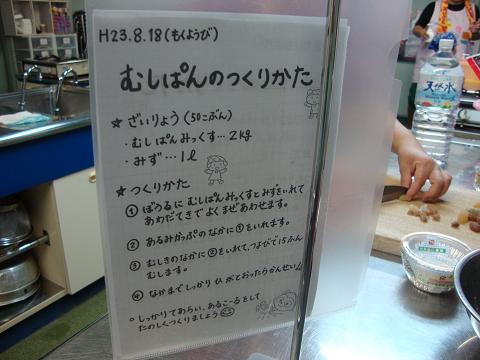 H23.8.18(もくようび)
むしぱんのつくりかた
★ ざいりょう(50こぶん)
・むしぱんみっくす…2kg
・みず…1ℓ
★ つくりかた
① ぼうるに むしぱんみっくすとみずをいれて
あわだてきでよくまぜあわせます。
② あるみかっぷのなかに①をいれます。
③ むしきのなかに②をいれて、つよびで15ふん
むします。
④ なかまでしっかり ひ がとおったらかんせい♪
○ しっかりてあらい、あるこーるをして
たのしくつくりましょう
天然水